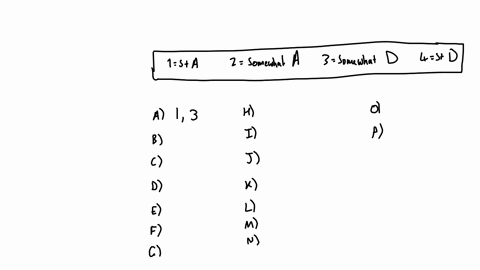 1=St A 2=Somewhat A 3=Somewhat D 4=St D
A) 1, 3
B)
C)
D)
E)
F)
G)
H)
I)
J)
K)
L)
M)
N)
O)
P)